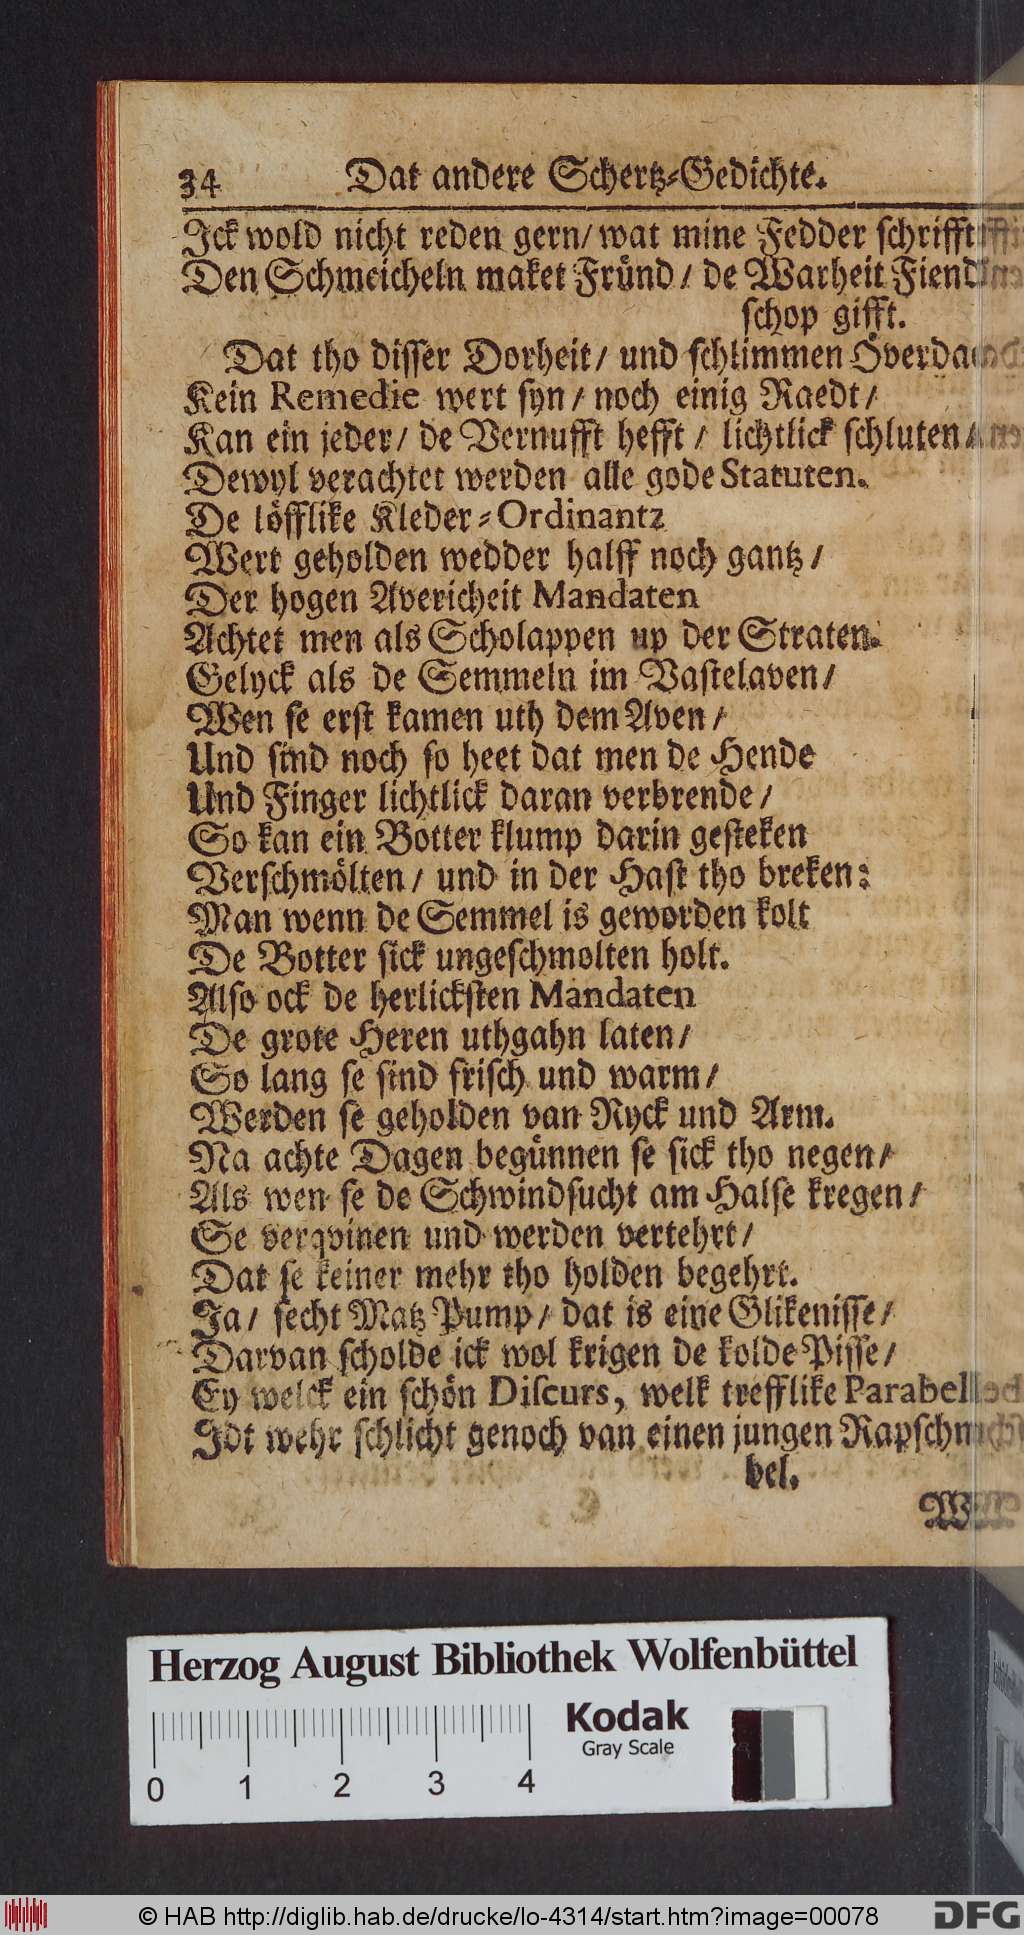 34 Dat andere Schertz-Gedichte.
Ick wold nicht reden gern/ wat mine Fedder schrifft
Den Schmeicheln maket Fründ/ de Warheit Fiend
schop gifft.
Dat tho disser Dorheit/ und schlimmen Överdaed
Kein Remedie wert syn/ noch einig Raedt/
Kan ein jeder/ de Vernufft hefft/ lichtlick schluten/
Dewyl verachtet werden alle gode Statuten.
De löfflike Kleder-Ordinantz
Wert geholden wedder halff noch gantz/
Der hogen Avericheit Mandaten
Achtet men als Scholappen up der Straten.
Gelyck als de Semmeln im Vastelaven/
Wen se erst kamen uth dem Aven/
Und sind noch so heet dat men de Hende
Und Finger lichtlick daran verbrende/
So kan ein Botter klump darin gesteken
Verschmölten/ und in der Hast tho breken:
Man wenn de Semmel is geworden kolt
De Botter sick ungeschmolten holt.
Also ock de herlicksten Mandaten
De grote Heren uthgahn laten/
So lang se sind frisch und warm/
Werden se geholden van Ryck und Arm.
Na achte Dagen begünnen se sick tho negen/
Als wen se de Schwindsucht am Halse kregen/
Se verqvinen und werden vertehrt/
Dat se keiner mehr tho holden begehrt.
Ja/ secht Matz Pump/ dat is eine Glikenisse/
Darvan scholde ick wol krigen de kolde Pisse/
Ey welck ein schön Discurs, welk trefflike Parabel
Idt wehr schlicht genoch van einen jungen Rapschna
bel.
Herzog August Bibliothek Wolfenbüttel
Kodak
Gray Scale
0 1 2 3 4
© HAB http://diglib.hab.de/drucke/lo-4314/start.htm?image=00078
DFG